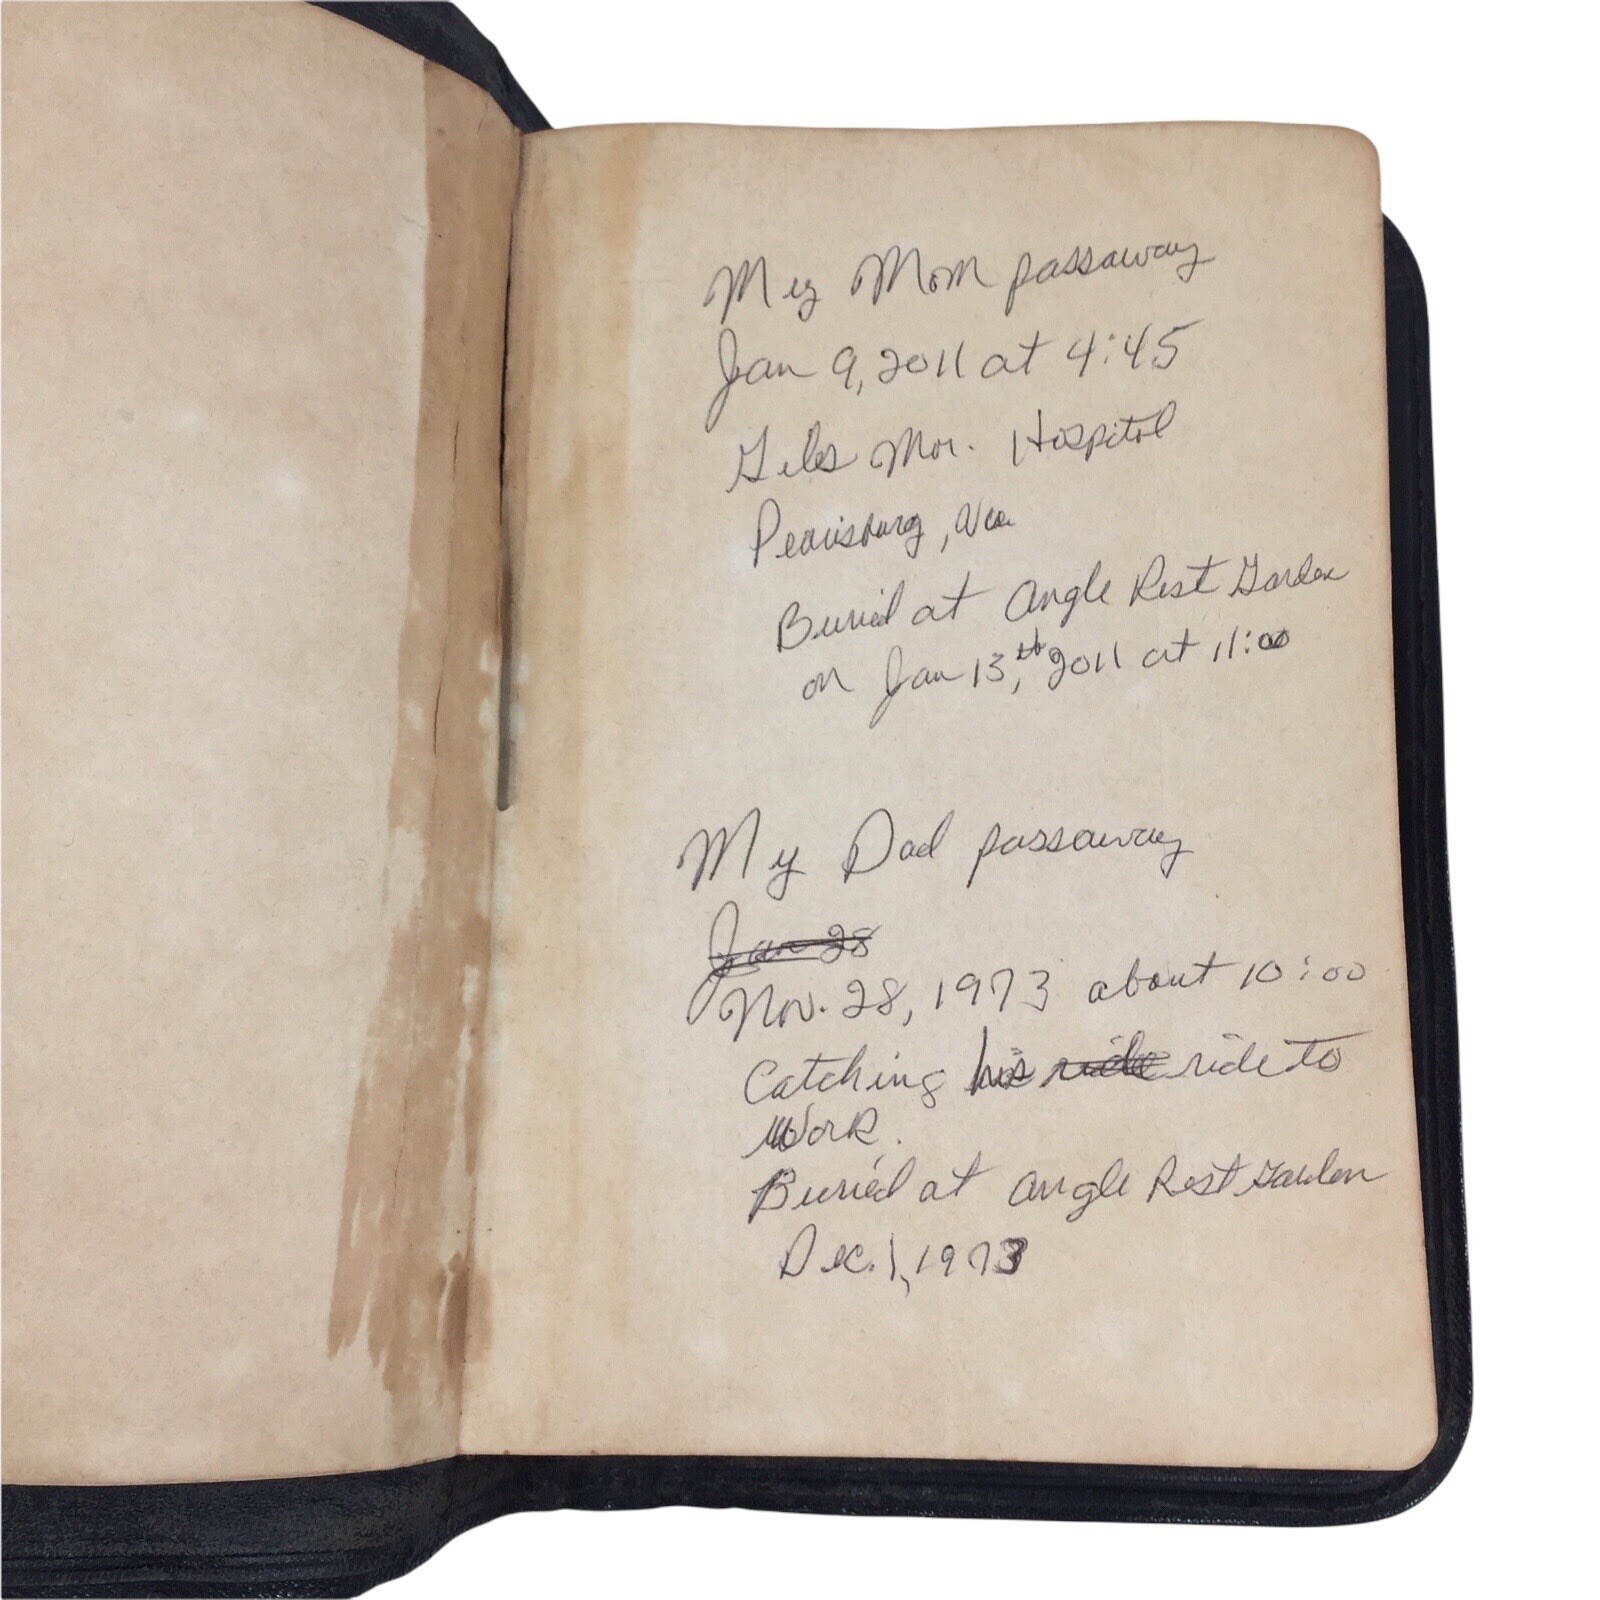 My Mom passaway
Jan 9, 2011 at 4:45
Giles Mor. Hospital
Pearisburg, Va
Buried at Angle Rest Garden
on Jan 13th, 2011 at 11:00
My Dad passaway
Jan 28
Nov. 28, 1973 about 10:00
Catching his ride ride to
Work.
Buried at Angle Rest Garden
Dec. 1, 1973